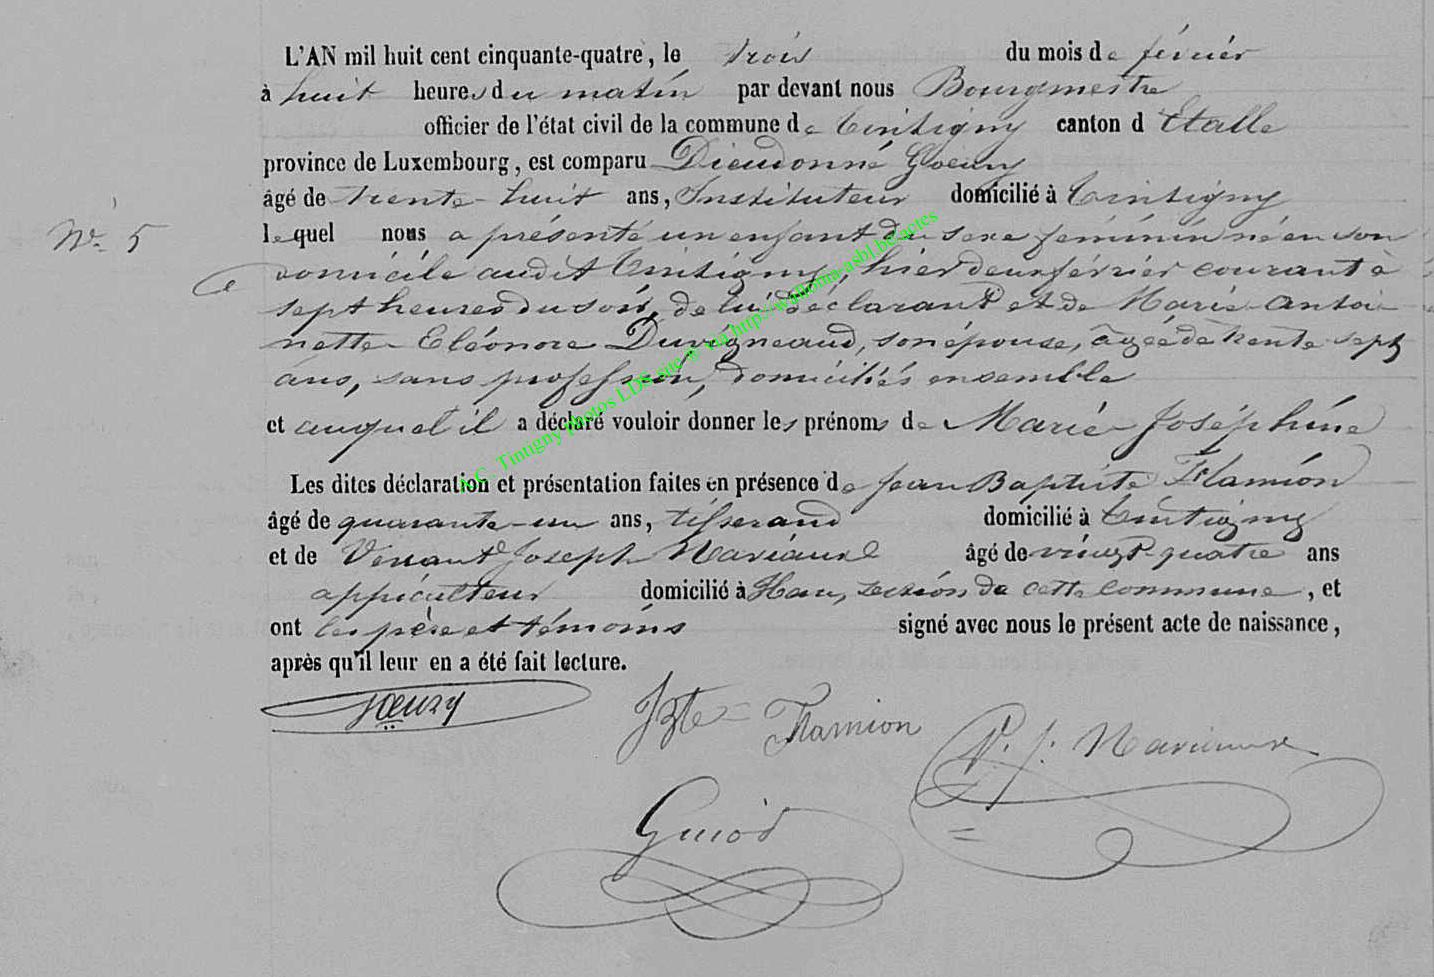 L'AN mil huit cent cinquante-quatre, le trois du mois de février
à huit heures du matin par devant nous Bourgmestre
officier de l'état civil de la commune de Tintigny canton d'Etalle
province de Luxembourg, est comparu Dieudonné Goeury
âgé de trente-huit ans, Instituteur domicilié à Tintigny
N° 5
lequel nous a présenté un enfant du sexe féminin né en son
domicile audit Tintigny, hier deux février courant à
sept heures du soir, de lui déclarant et de Marie Antoi
nette Eléonore Duvigneaud, son épouse, âgée de trente-sept
ans, sans profession, domiciliés ensemble
et auquel il a déclaré vouloir donner les prénoms de Marie Joséphine
Les dites déclaration et présentation faites en présence de Jean Baptiste Flamion
âgé de quarante-un ans, tisserand domicilié à Tintigny
et de Venant Joseph âgé de vingt quatre ans
domicilié à Han, section de cette commune, et
ont les père et témoins signé avec nous le présent acte de naissance,
après qu'il leur en a été fait lecture.
Goeury
JBte Flamion
V. J.
Guiot
A.C. Tintigny photos LDS-spc © via http://wallonia-asbl.be/actes